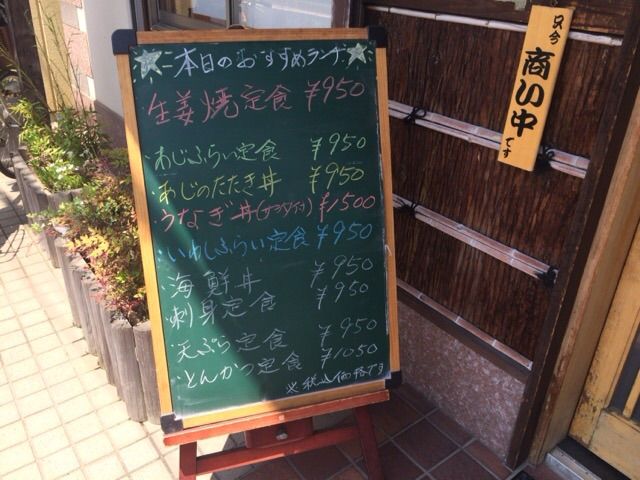 本日のおすすめランチ
生姜焼定食 ¥950
・あじふらい定食 ¥950
・あじのたたき丼 ¥950
うなぎ丼 ¥1500
・いわしふらい定食 ¥950
・海鮮丼 ¥950
・刺身定食 ¥950
・天ぷら定食 ¥950
・とんかつ定食 ¥1050
※税込価格です
只今
商い中
です